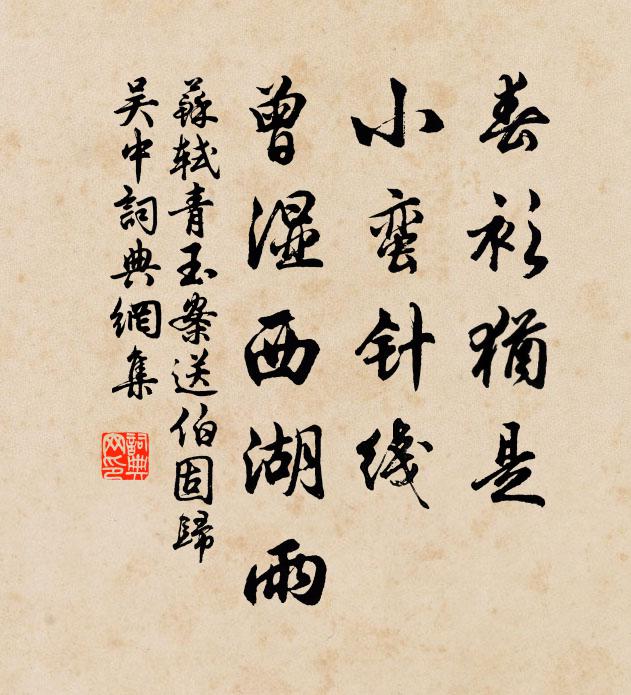 春衫猶是
小蛮针线
曾湿西湖雨
蘇軾青玉案送伯固歸
吴中詞典網集
詞典网印